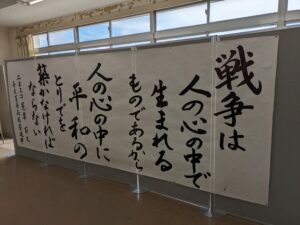 戦争は
人の心の中で
生まれる
ものであるから
人の心の中に
平和の
とりでを
築かなければ
ならない